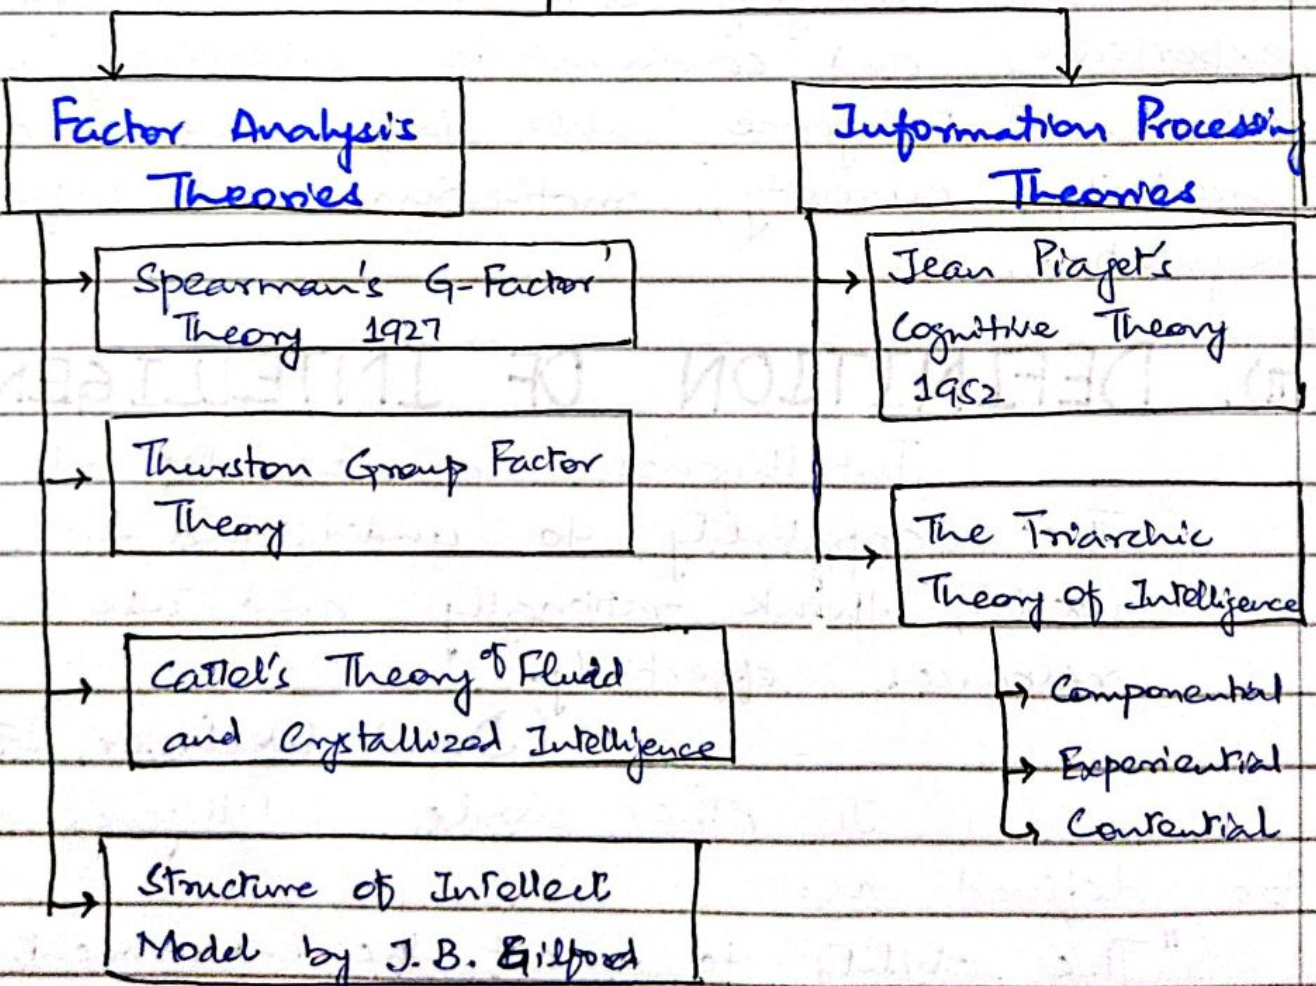 Factor Analysis
Theories
Spearman's G-Factor'
Theory 1927
Thurston Group Factor
Theory
Cattel's Theory of Fluid
and Crystallized Intelligence
Structure of Intellect
Model by J.B. Gilford
Information Processing
Theories
Jean Piaget's
Cognitive Theory
1952
The Triarchic
Theory of Intelligence
Componential
Experiential
DEFINITION OF INTELLIGEN